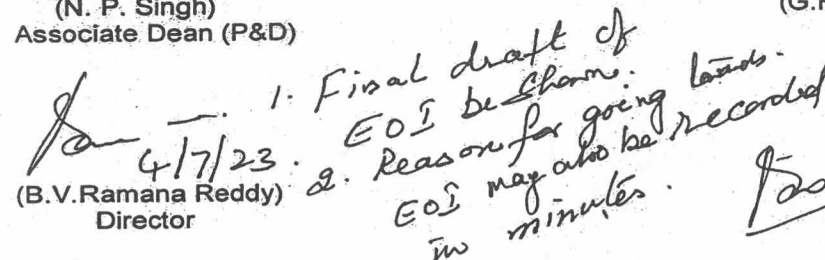 (N. P. Singh)
Associate Dean (P&D)
(G.
4/7/23.
(B.V.Ramana Reddy)
Director
1. Final draft of
EOI be shown.
2. Reason for going
EOI may also be recorded
in minutes.